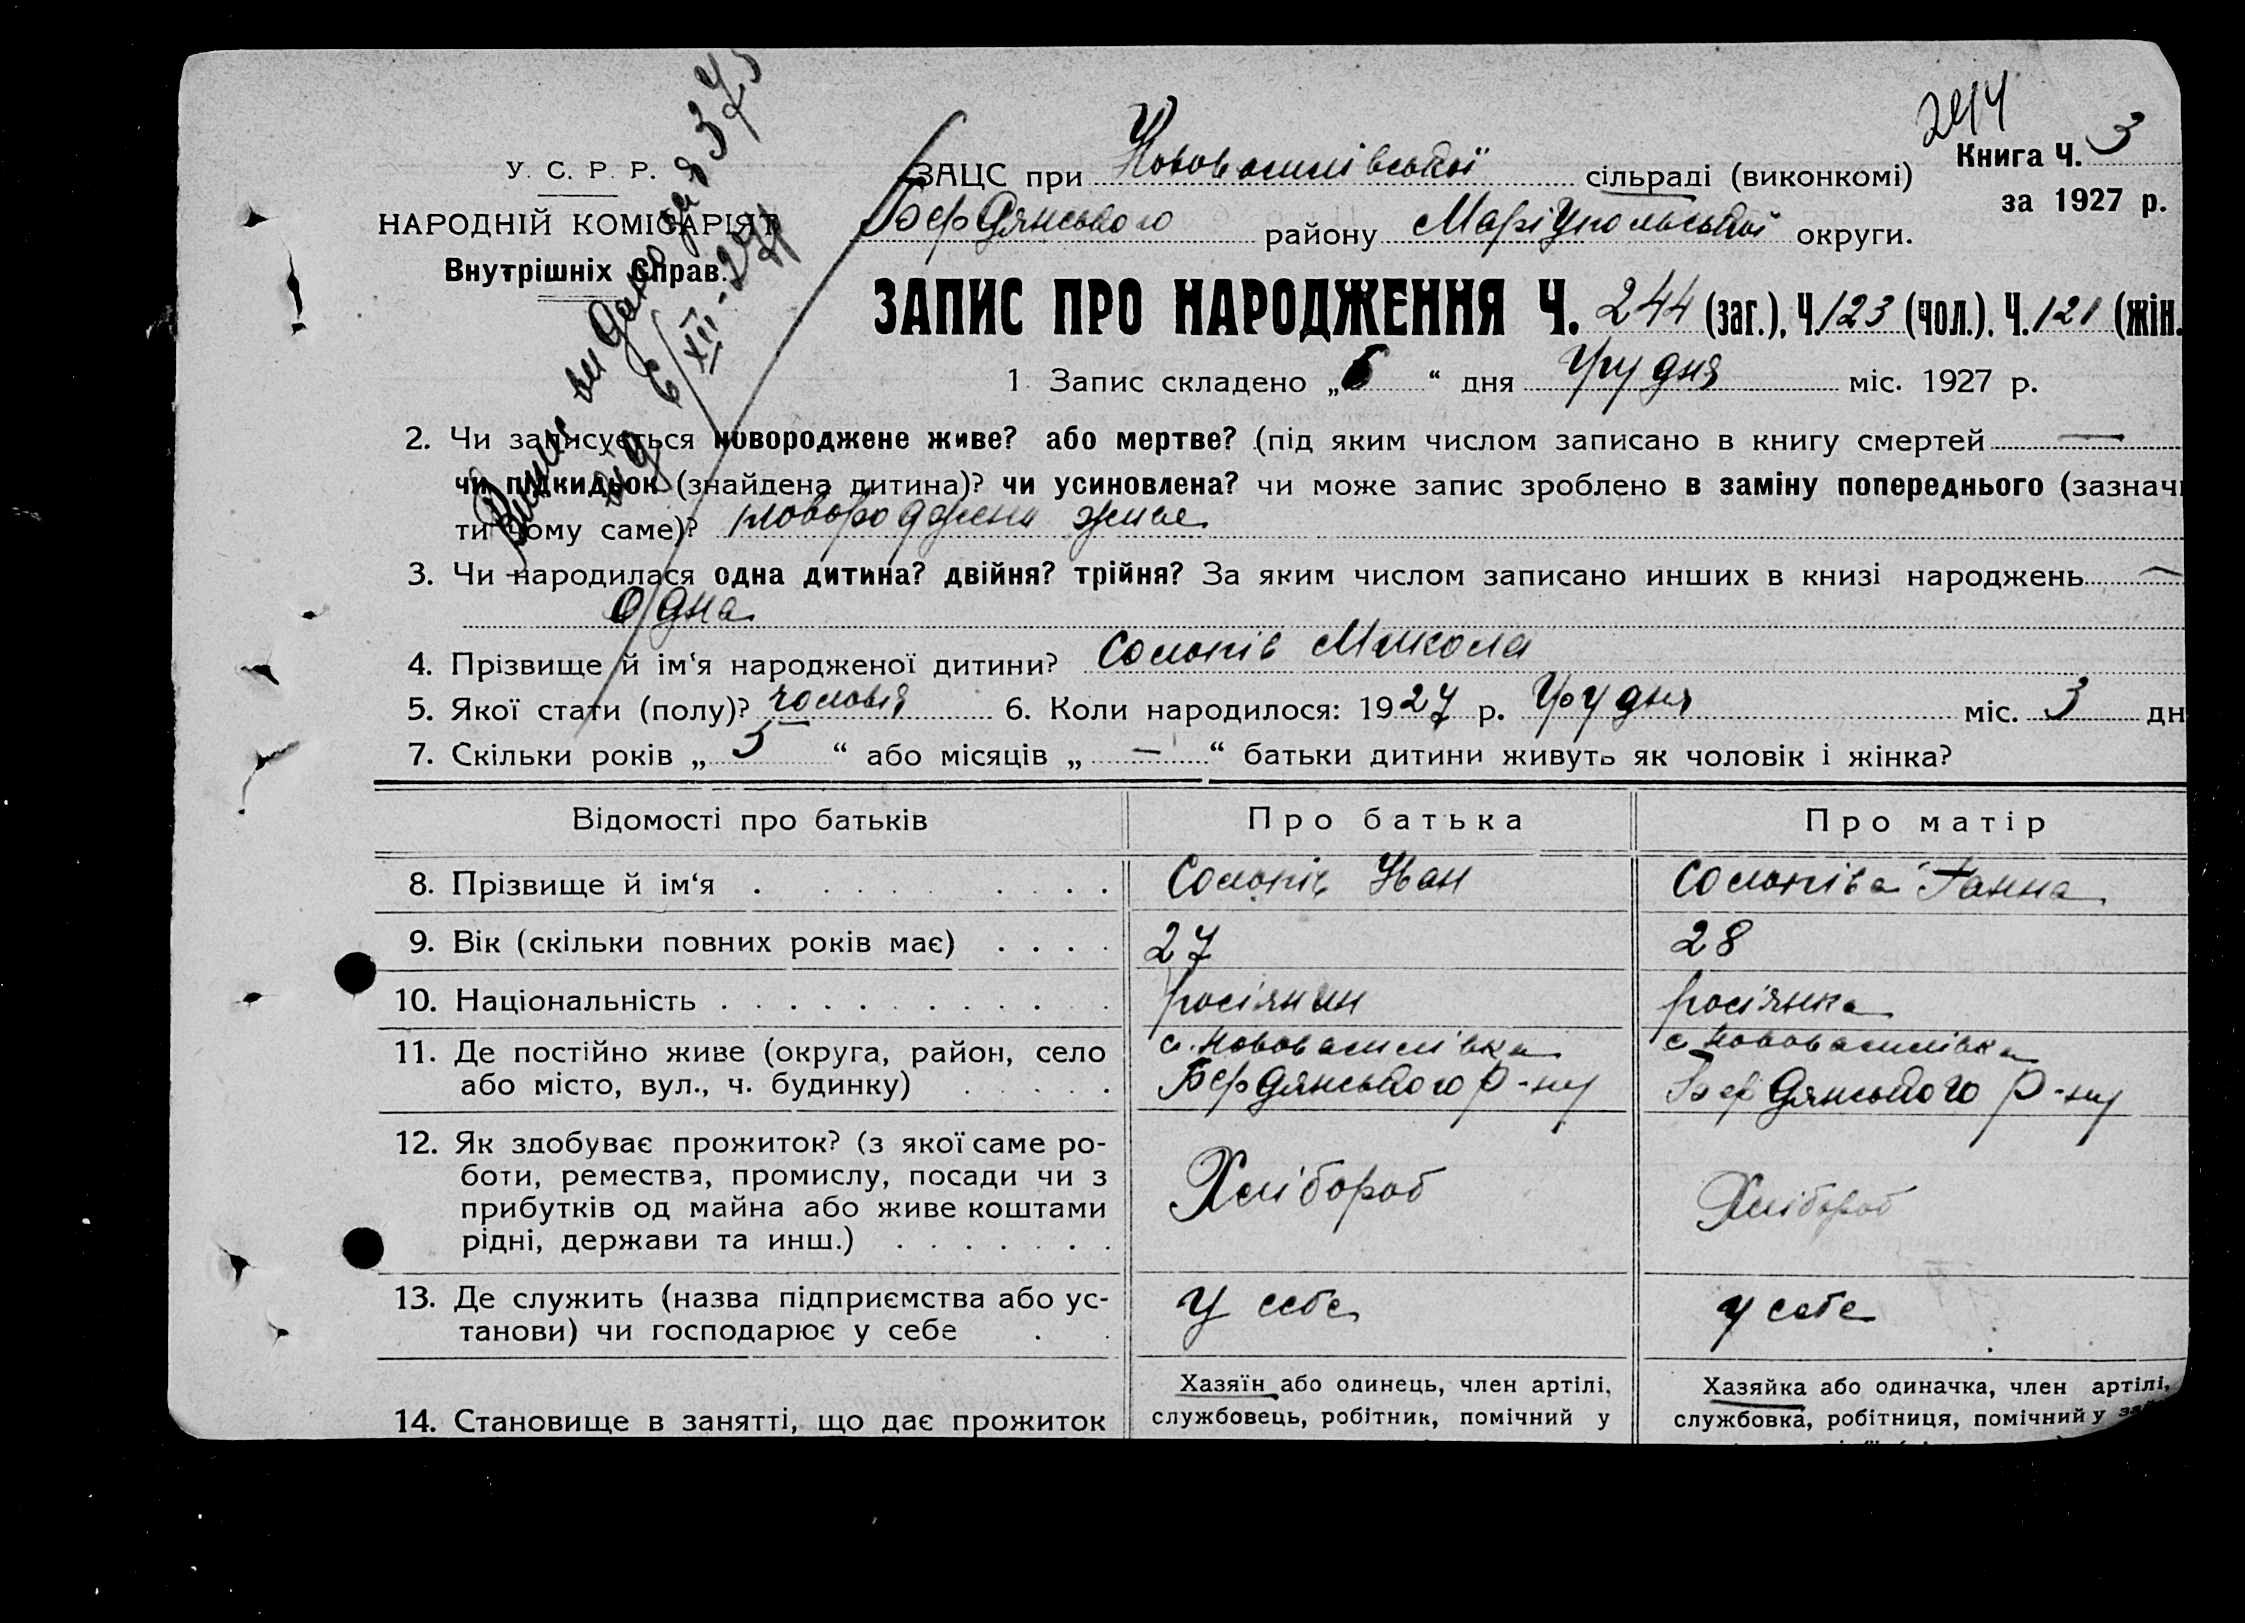 244
У. С. Р. Р.
НАРОДНІЙ КОМІСАРІЯТ
Внутрішніх Справ.
Випис видано за 373
від 6/XII-27
Книга Ч. 3
за 1927 р.
ЗАЦС при Нововасилівської сільраді (виконкомі)
Бердянського району Маріупольської округи.
ЗАПИС ПРО НАРОДЖЕННЯ Ч. 244 (заг.), Ч. 123 (чол.). Ч. 121 (жін.
1 Запис складено „6“ дня Грудня міс. 1927 р.
2. Чи записується новороджене живе? або мертве? (під яким числом записано в книгу смертей —
чи підкидьок (знайдена дитина)? чи усиновлена? чи може запис зроблено в заміну попереднього (зазначи
ти чому саме)? новороджене живе
3. Чи народилася одна дитина? двійня? трійня? За яким числом записано инших в книзі народжень —
одна
4. Прізвище й ім‘я народженої дитини? Солопів Микола
5. Якої стати (полу)? чоловіч 6. Коли народилося: 1927 р. Грудня міс. 3 дн
7. Скільки років „ 5 “ або місяців „ — “ батьки дитини живуть як чоловік і жінка?
Відомості про батьків Про батька Про матір
8. Прізвище й ім‘я . . . . . . . . . Солопів Иван Солопіва Ганна
9. Вік (скільки повних років має) . . . . 27 28
10. Національність . . . . . . . . . . . росіянин росіянка
11. Де постійно живе (округа, район, село с. Нововасилівка с Нововасилівка
або місто, вул., ч. будинку) . . . . . Бердянського р-ну Бердянського р-ну
12. Як здобуває прожиток? (з якої саме ро-
боти, ремества, промислу, посади чи з
прибутків од майна або живе коштами Хлібороб Хлібороб
рідні, держави та инш.) . . . . . . .
13. Де служить (назва підприємства або ус- у себе у себе
танови) чи господарює у себе . .
Хазяїн або одинець, член артілі, Хазяйка або одиначка, член артілі,
14. Становище в занятті, що дає прожиток службовець, робітник, помічний у службовка, робітниця, помічний у